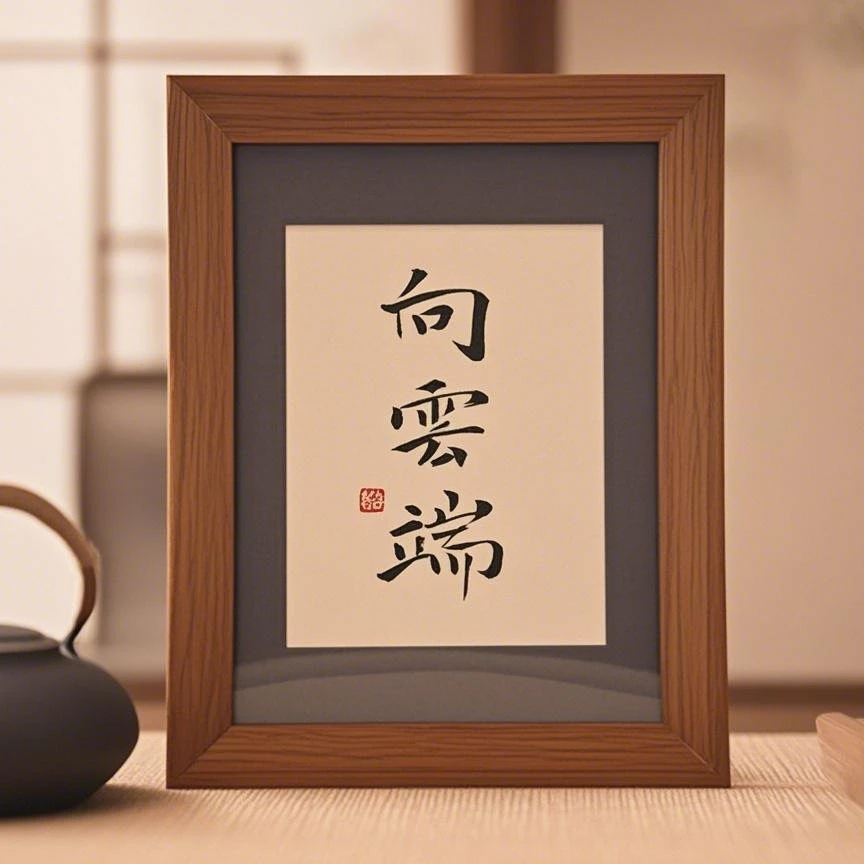 向雲端